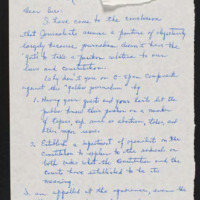 Dear Sir:
I have come to the conclusion
that journalists assume a posture of objectivity
largely because journalism doesn't have the
guts to take a position relative to our
laws and constitution.
Why don't you on C-Span campaign
against this "gutless journalism" by
1. Having your guests and your hosts let the
public know their position on a number
of topics, say such as abortion, taxes, and
other major issues.
2. Establish a department of specialists in the
Constitution to explain to the audience on
both sides what the Constitution and the
courts have established to be its
meaning.
I am appalled at the ignorance, even the